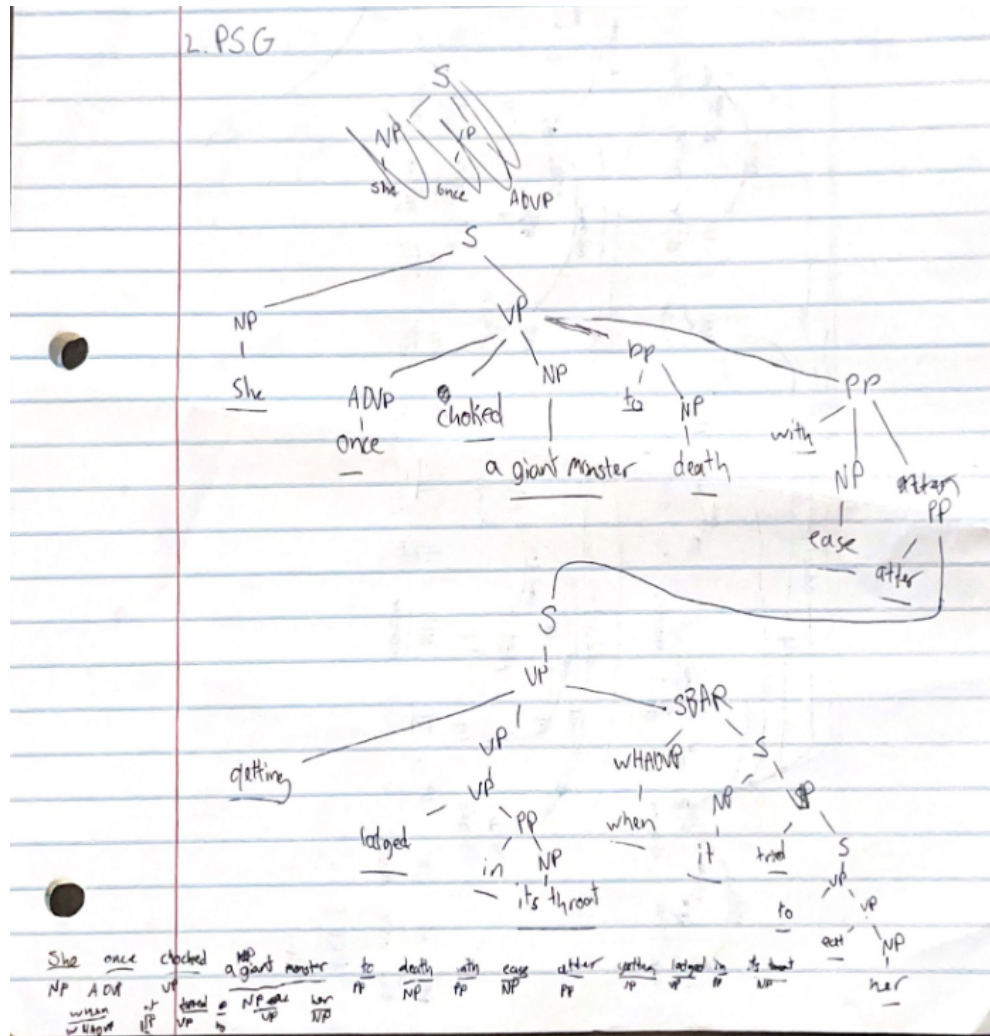 2. PSG
S
NP VP
she once ADVP
S
NP VP
She ADVP choked NP PP PP
once a giant monster to NP with NP PP
death ease after
S
VP
getting VP SBAR
VP WHADVP S
lodged PP when NP VP
in NP it tried S
its throat VP
to VP
eat NP
her
She once chocked a giant monster to death with ease after getting lodged in its throat
NP ADVP VP NP PP NP PP NP PP VP VP PP NP
when it tried to eat her
WHADVP NP VP VP NP